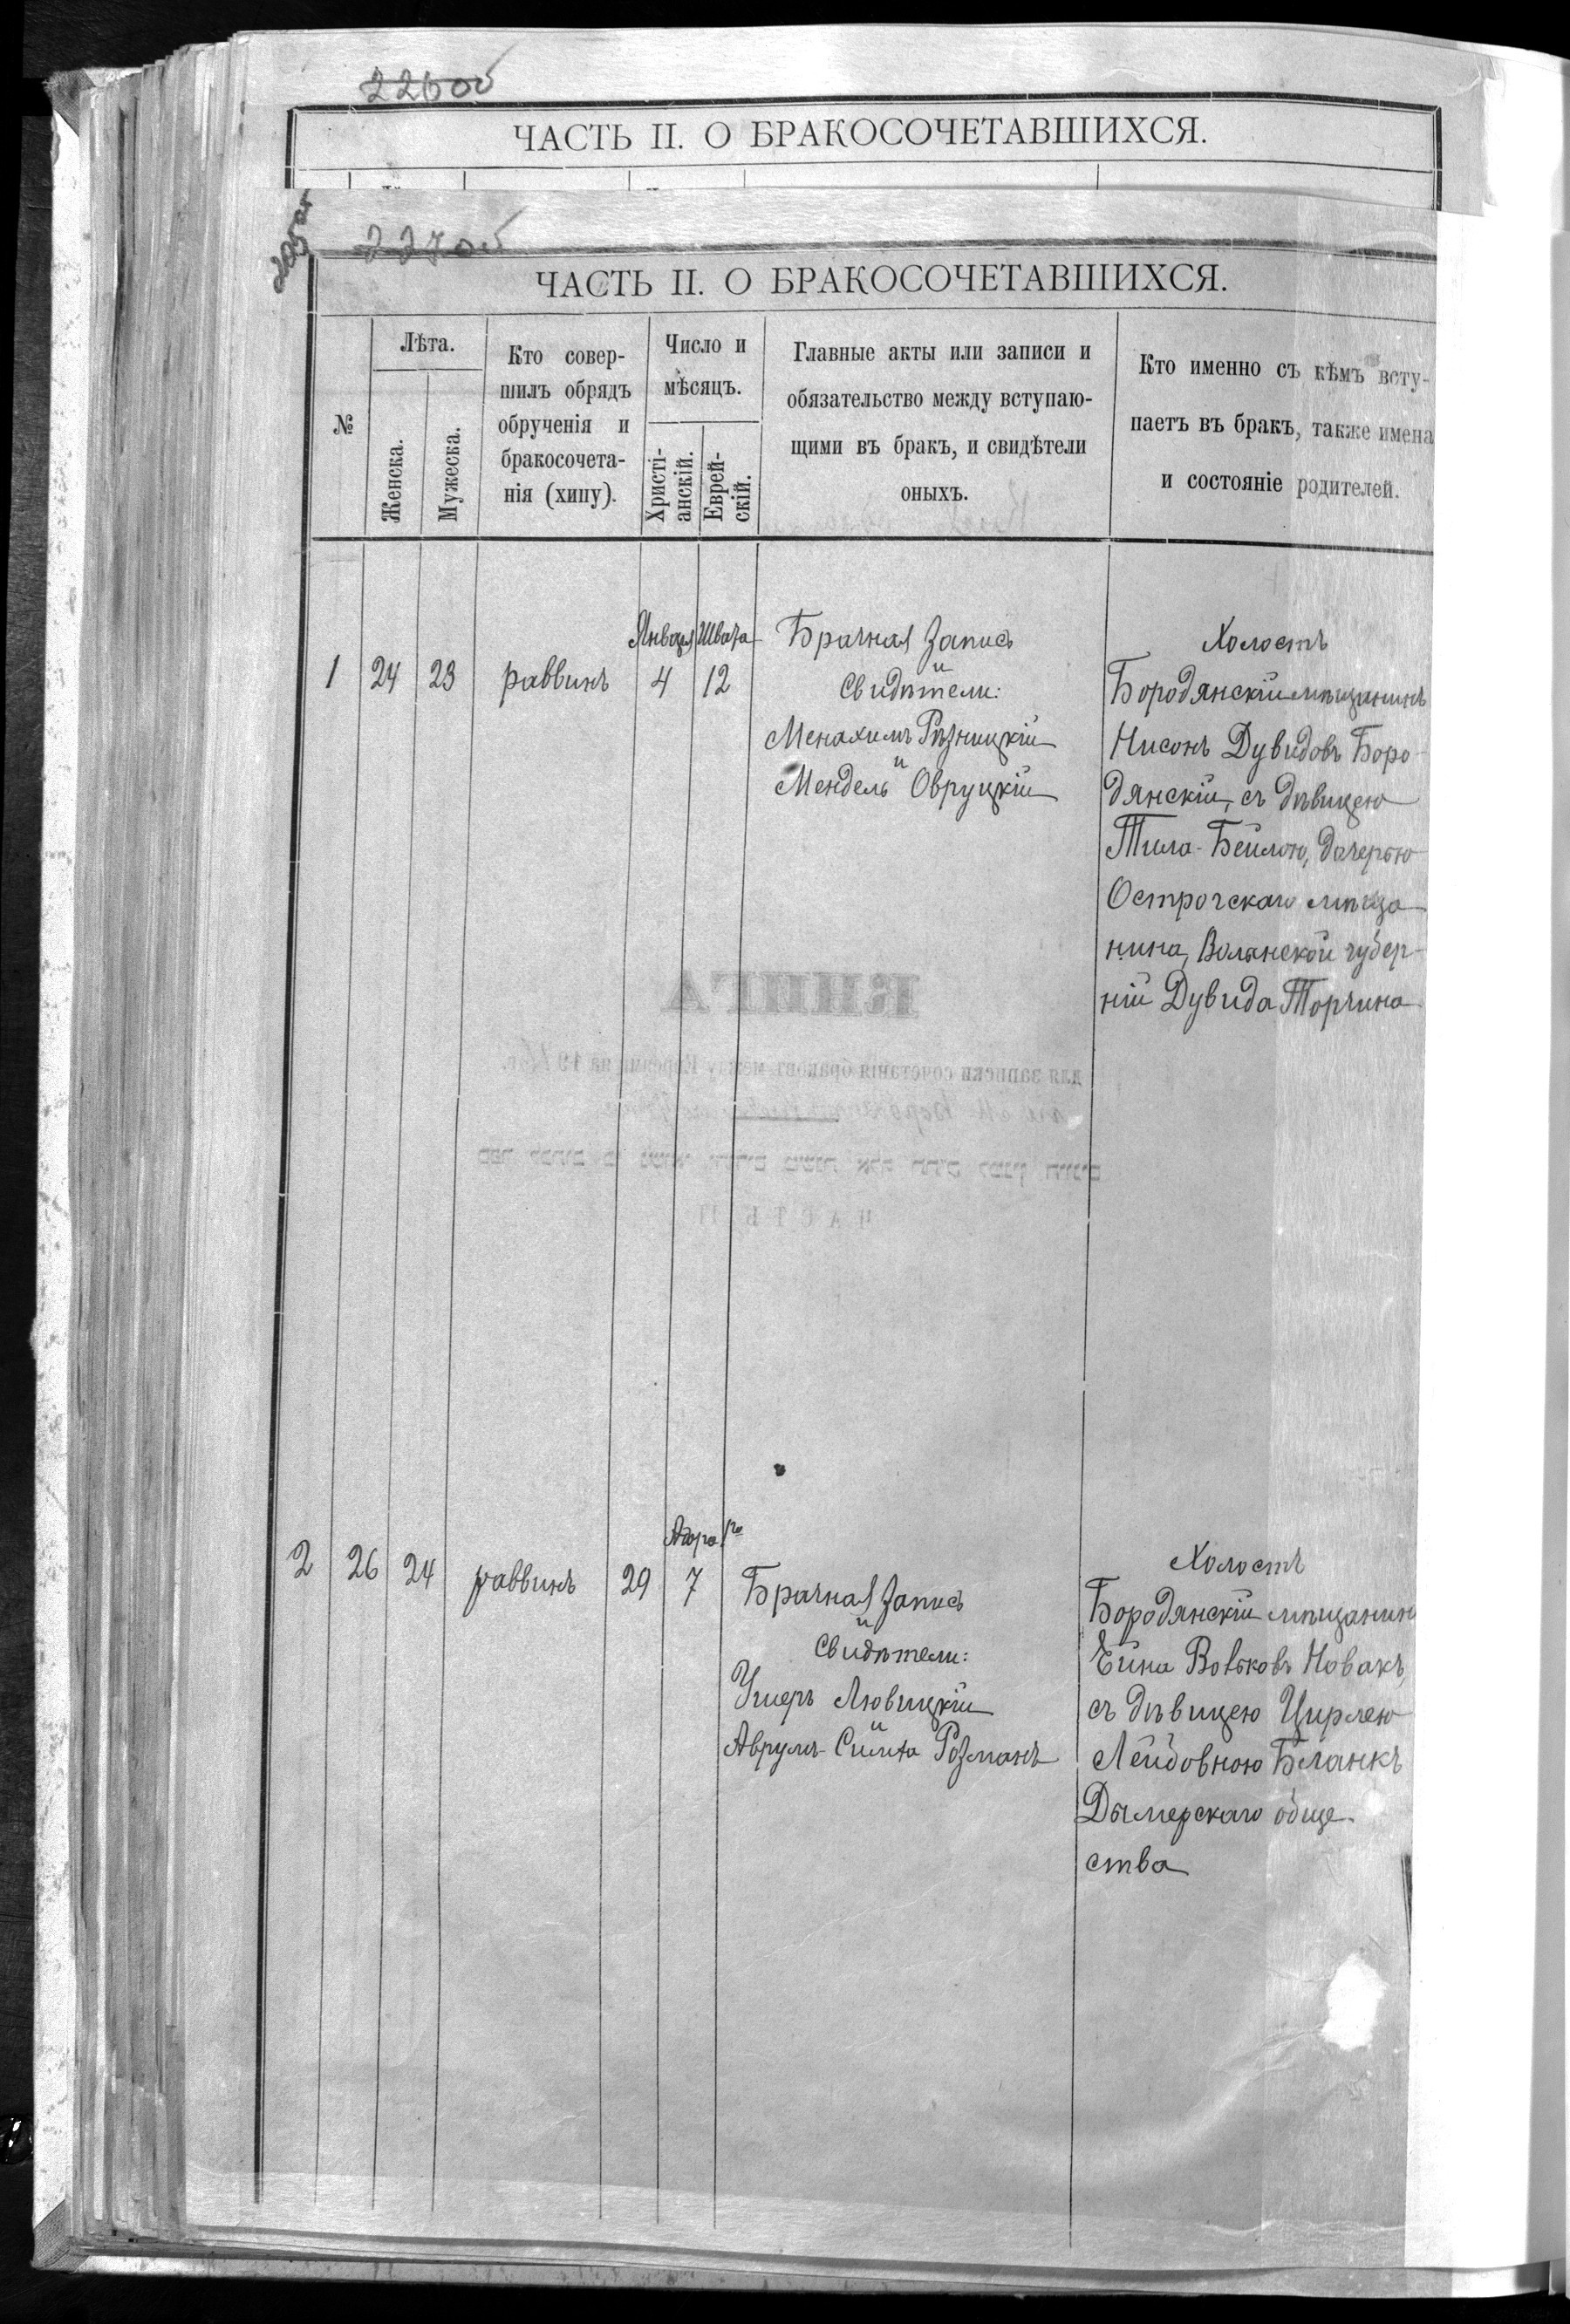 226 об
ЧАСТЬ II. О БРАКОСОЧЕТАВШИХСЯ.
227 об
ЧАСТЬ II. О БРАКОСОЧЕТАВШИХСЯ.
№
Лѣта.
Женска.
Мужеска.
Кто совер-
шилъ обрядъ
обрученія и
бракосочета-
нія (хипу).
Число и
мѣсяцъ.
Христі-
анскій.
Еврей-
скій.
Главные акты или записи и
обязательство между вступаю-
щими въ бракъ, и свидѣтели
оныхъ.
Кто именно съ кѣмъ всту-
паетъ въ бракъ, также имена
и состояніе родителей.
1
24
23
раввинъ
Января
4
Швата
12
Брачная запись
и
свидѣтели:
Менахимъ Рѣзницкій
и
Мендель Овруцкій
Холостъ
Бородянскій мѣщанинъ
Нисонъ Дувидовъ Боро-
дянскій, съ дѣвицею
Тила-Бейлою, дочерью
Острогскаго мѣща-
нина, Волынской губер-
ніи Дувида Торчина
КНИГА
для записки сочетанія браковъ между Евреями на 191 г.
ЧАСТЬ II
2
26
24
раввинъ
29
Адара
7
Брачная запись
и
свидѣтели:
Ушеръ Любицкій
и
Аврумъ-Симха Розманъ
Холостъ
Бородянскій мѣщанин
Ейна Вовковъ Новакъ,
съ дѣвицею Цирлею
Лейбовною Бланкъ
Дымерскаго обще-
ства